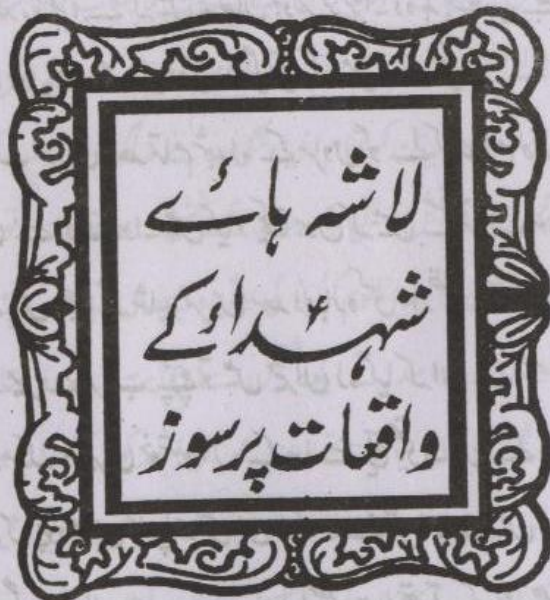 لاشہ ہائے
شہداء کے
واقعات پرسوز